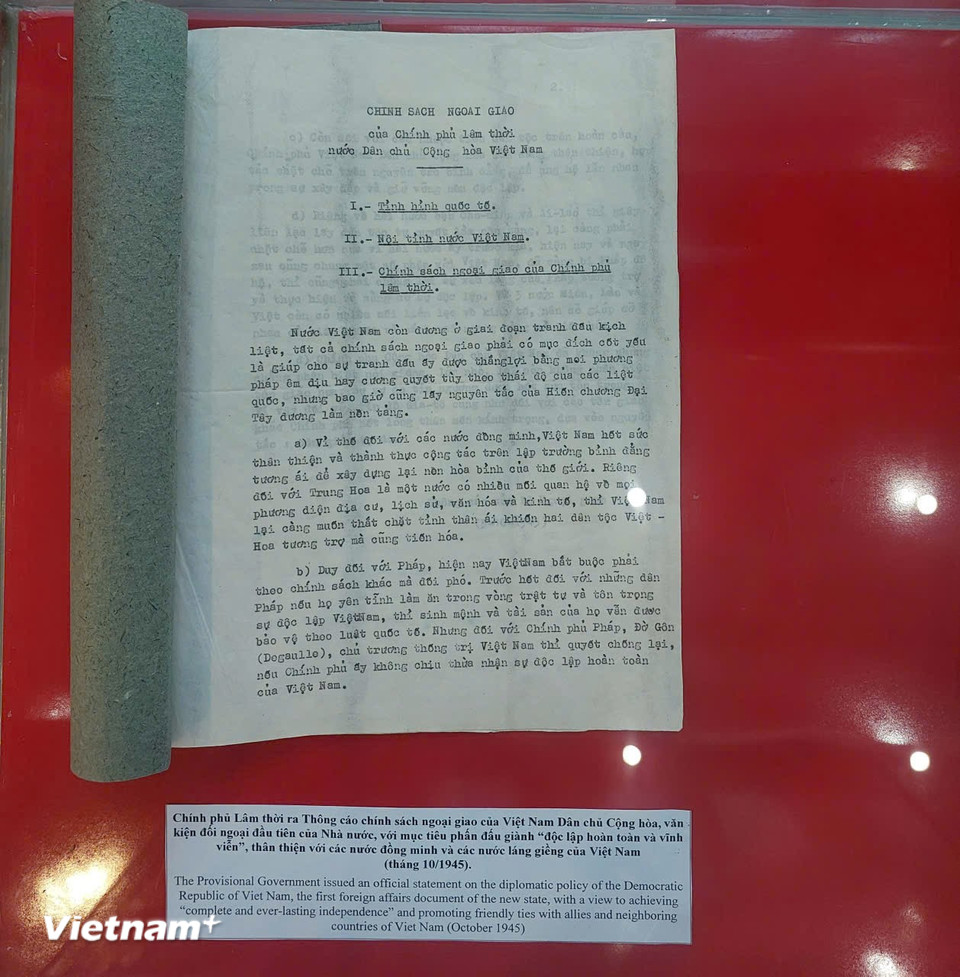 CHINH SACH NGOAI GIAO
của Chính phủ lâm thời
nước Dân chủ Cộng hòa Việt Nam
I.- Tình hình quốc tế.
II.- Nội tình nước Việt Nam.
III.- Chính sách ngoại giao của Chính phủ
lâm thời.
Nước Việt Nam còn đương ở giai đoạn tranh đấu kịch
liệt, tất cả chính sách ngoại giao phải có mục đích cốt yếu
là giúp cho sự tranh đấu ấy được thắnglợi bằng mọi phương
pháp êm dịu hay cương quyết tùy theo thái độ của các liệt
quốc, nhưng bao giờ cũng lấy nguyên tắc của Hiến chương Đại
Tây dương làm nền tảng.
a) Vì thế đối với các nước đồng minh,Việt Nam hết sức
thân thiện và thành thực cộng tác trên lập trường bình đẳng
tương ái để xây dựng lại nền hòa bình của thế giới. Riêng
đối với Trung Hoa là một nước có nhiều mối quan hệ về mọi
phương diện địa cư, lịch sử, văn hóa và kinh tế, thì Việt Nam
lại càng muốn thắt chặt tình thân ái khiến hai dân tộc Việt -
Hoa tương trợ mà cùng tiến hóa.
b) Duy đối với Pháp, hiện nay ViệtNam bắt buộc phải
theo chính sách khác mà đối phó. Trước hết đối với những dân
Pháp nếu họ yên tĩnh làm ăn trong vòng trật tự và tôn trọng
sự độc lập ViệtNam, thì sinh mệnh và tài sản của họ vẫn được
bảo vệ theo luật quốc tế. Nhưng đối với Chính phủ Pháp, Đờ Gôn
(Degaulle), chủ trương thống trị Việt Nam thì quyết chống lại,
nếu Chính phủ ấy không chịu thừa nhận sự độc lập hoàn toàn
của Việt Nam.
Chính phủ Lâm thời ra Thông cáo chính sách ngoại giao của Việt Nam Dân chủ Cộng hòa, văn
kiện đối ngoại đầu tiên của Nhà nước, với mục tiêu phấn đấu giành “độc lập hoàn toàn và vĩnh
viễn”, thân thiện với các nước đồng minh và các nước láng giềng của Việt Nam
(tháng 10/1945).
The Provisional Government issued an official statement on the diplomatic policy of the Democratic
Republic of Viet Nam, the first foreign affairs document of the new state, with a view to achieving
“complete and ever-lasting independence” and promoting friendly ties with allies and neighboring
countries of Viet Nam (October 1945)
Vietnam+